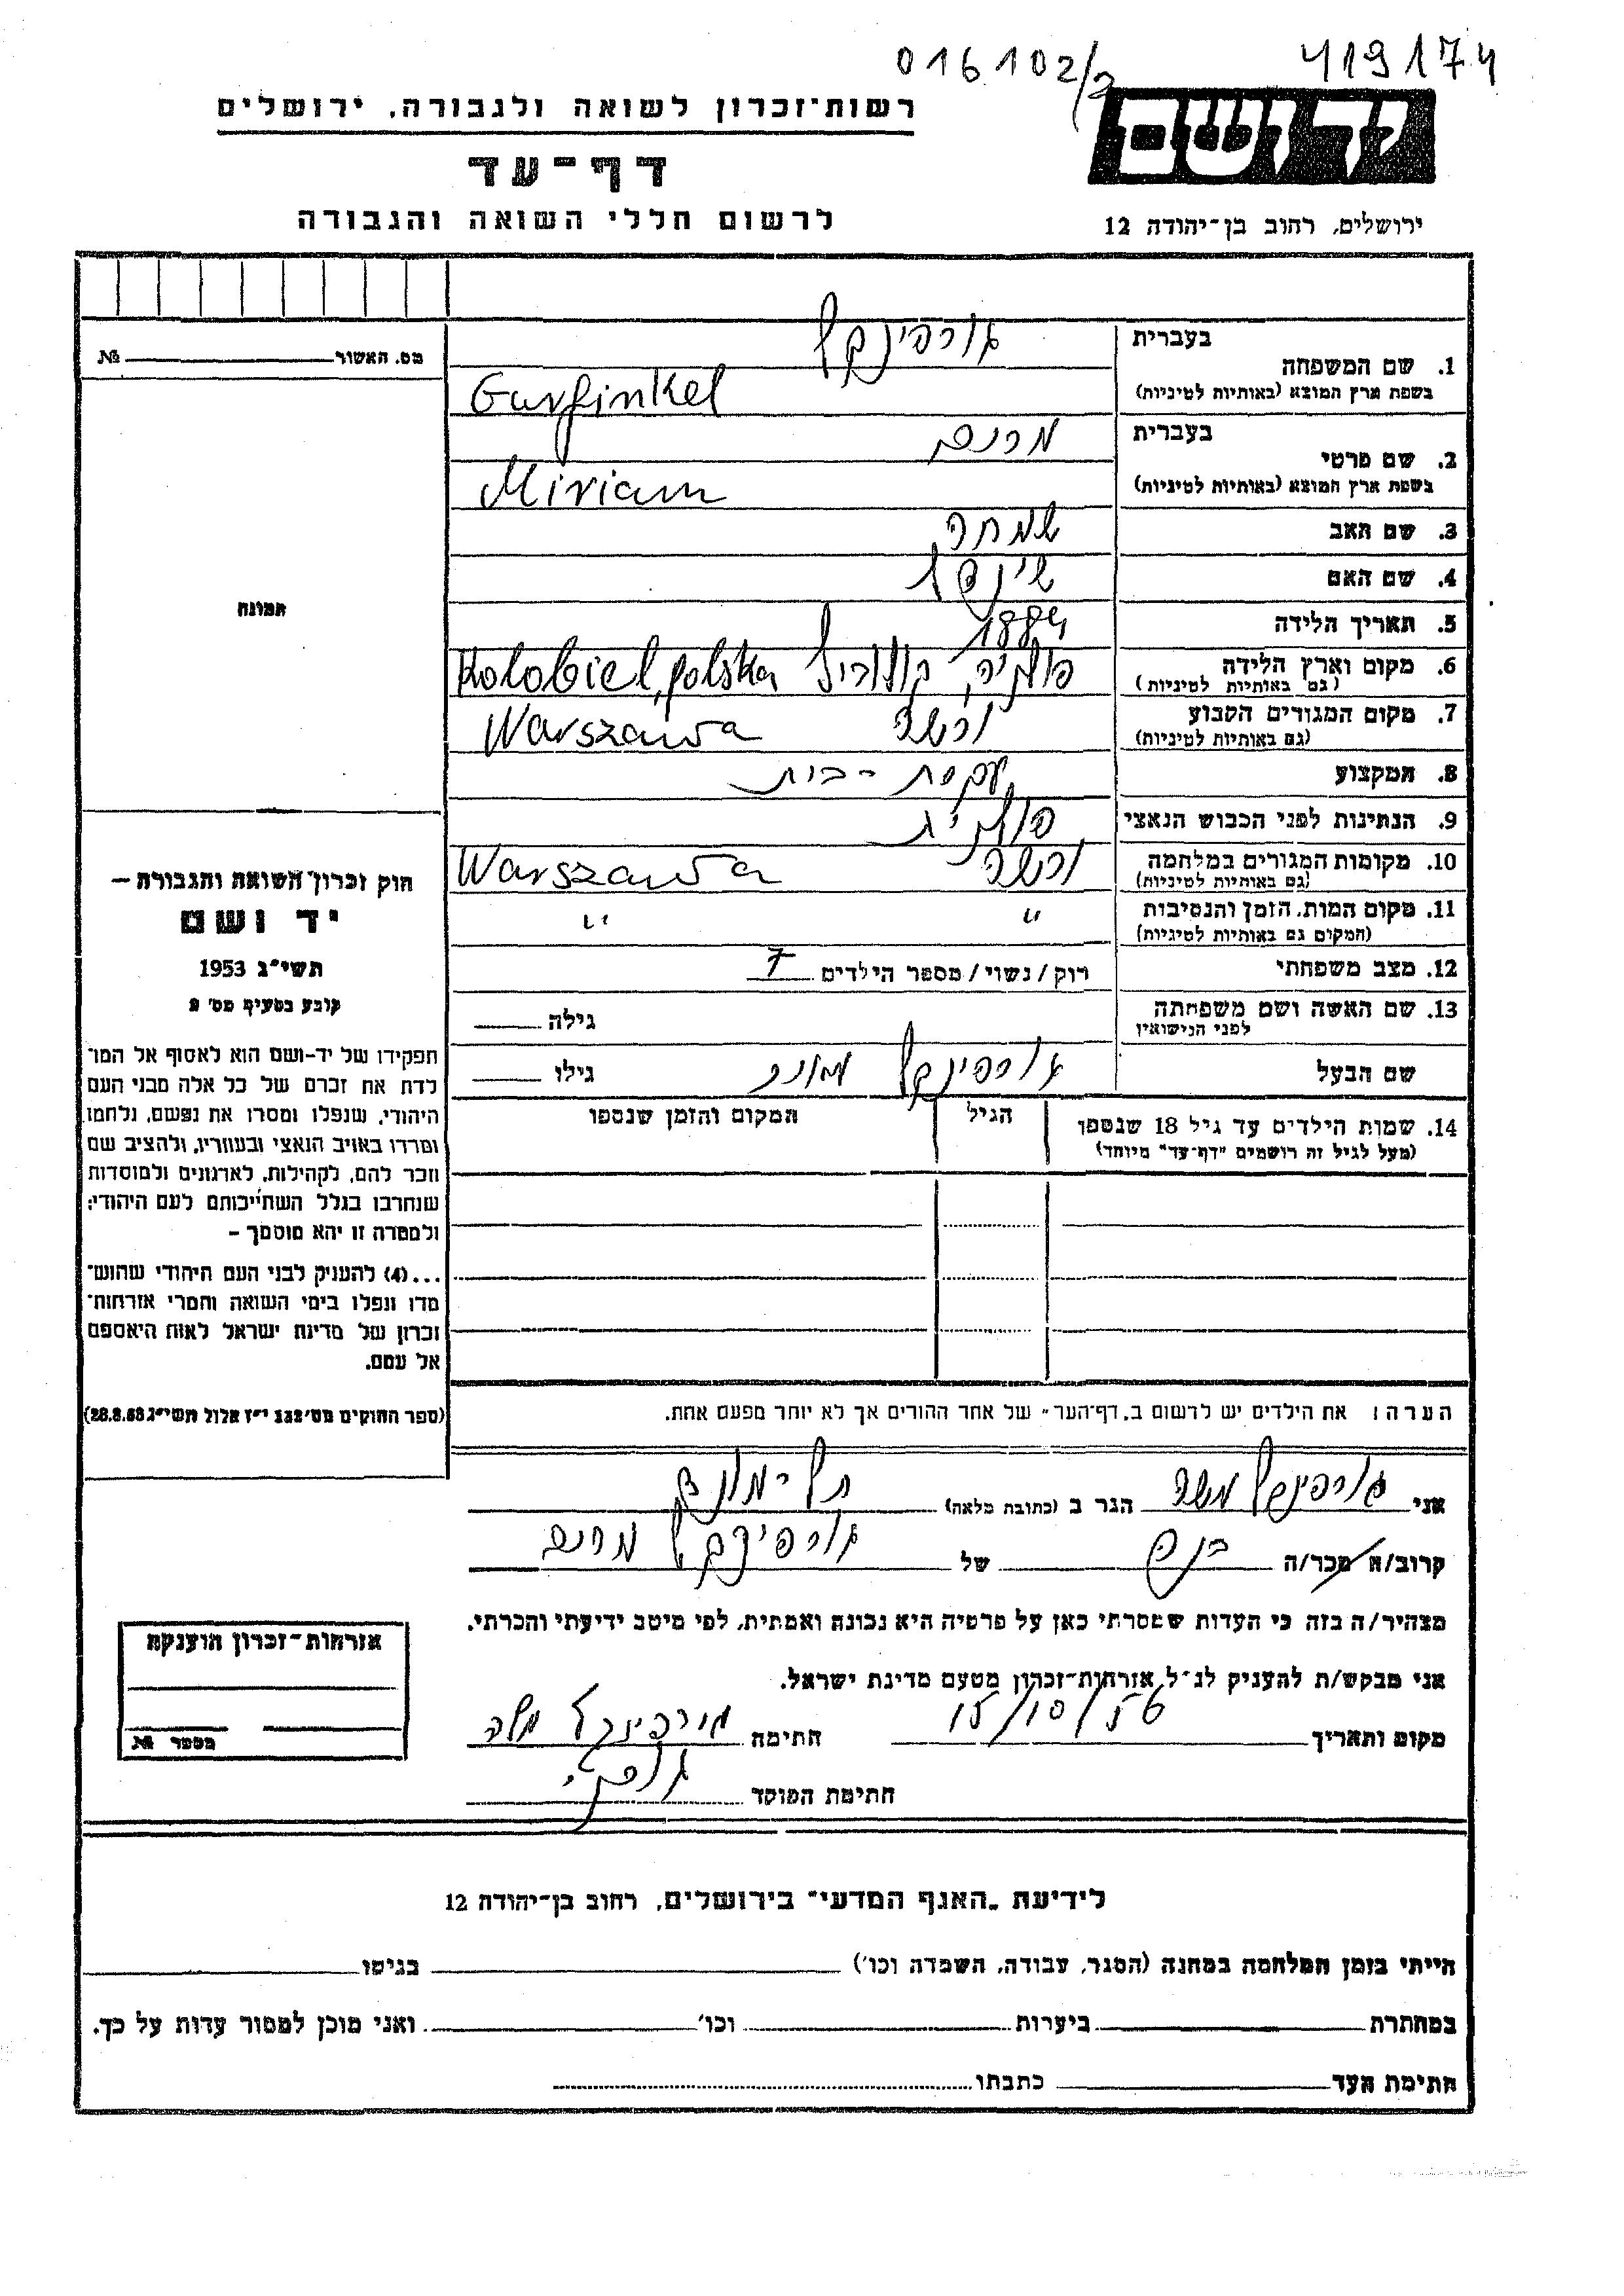 016102/2 419174
רשות־זכרון לשואה ולגבורה, ירושלים
יד ושם
דף־עד
לרשום חללי השואה והגבורה
ירושלים, רחוב בן־יהודה 12
מס. האשור № 
1. שם המשפחה בעברית גורפינקל
בשפת ארץ המוצא (באותיות לטיניות) Gurfinkel
2. שם פרטי בעברית מרים
בשפת ארץ המוצא (באותיות לטיניות) Miriam
3. שם האב שמחה
4. שם האם שיינדל
5. תאריך הלידה 1884
6. מקום וארץ הלידה (גם באותיות לטיניות) פולניה, קולוביל Kolobiel, polska
7. מקום המגורים הקבוע (גם באותיות לטיניות) ורשה Warszawa
8. המקצוע עקרת-בית
9. הנתינות לפני הכבוש הנאצי פולנית
10. מקומות המגורים במלחמה (גם באותיות לטיניות) ורשה Warszawa
11. מקום המות, הזמן והנסיבות (המקום גם באותיות לטיניות) " "
12. מצב משפחתי רוק/נשוי/מספר הילדים 7
13. שם האשה ושם משפחתה לפני הנישואין גילה
שם הבעל גורפינקל גילו
14. שמות הילדים עד גיל 18 שנספו הגיל המקום והזמן שנספו
(מעל לגיל זה רושמים "דף־עד" מיוחד)
תמונה
חוק זכרון השואה והגבורה –
יד ושם
תשי"ג 1953
קובע בסעיף מס' 2
תפקידו של יד-ושם הוא לאסוף אל המו־
לדת את זכרם של כל אלה מבני העם
היהודי, שנפלו ומסרו את נפשם, נלחמו
ומרדו באויב הנאצי ובעוזריו, ולהציב שם
וזכר להם, לקהילות, לארגונים ולמוסדות
שנחרבו בגלל השתייכותם לעם היהודי;
ולמטרה זו יהא מוסמך –
...(4) להעניק לבני העם היהודי שהוש־
מדו ונפלו בימי השואה והמרי אזרחות־
זכרון של מדינת ישראל לאות היאספם
אל עמם.
(ספר החוקים מס' 132 י"ז אלול תשי"ג 28.8.53)
הערה: את הילדים יש לרשום ב„דף־העד" של אחד ההורים אך לא יותר מפעם אחת.
אני גורפינקל משה הגר ב (כתובת מלאה) תל-מונד
קרוב/ה מכר/ה בנה של גורפינקל מרים
מצהיר/ה בזה כי העדות שמסרתי כאן על פרטיה היא נכונה ואמתית, לפי מיטב ידיעתי והכרתי.
אני מבקש/ת להעניק לנ"ל אזרחות־זכרון מטעם מדינת ישראל.
מקום ותאריך 15/10/56 חתימה גורפינקל משה
חתימת הפוקד
אזרחות־זכרון הוענקה
מספר №
לידיעת „האגף המדעי" בירושלים, רחוב בן־יהודה 12
הייתי בזמן המלחמה במחנה (הסגר, עבודה, השמדה וכו') בגיטו
במחתרת ביערות וכו' ואני מוכן למסור עדות על כך.
חתימת העד כתבתו